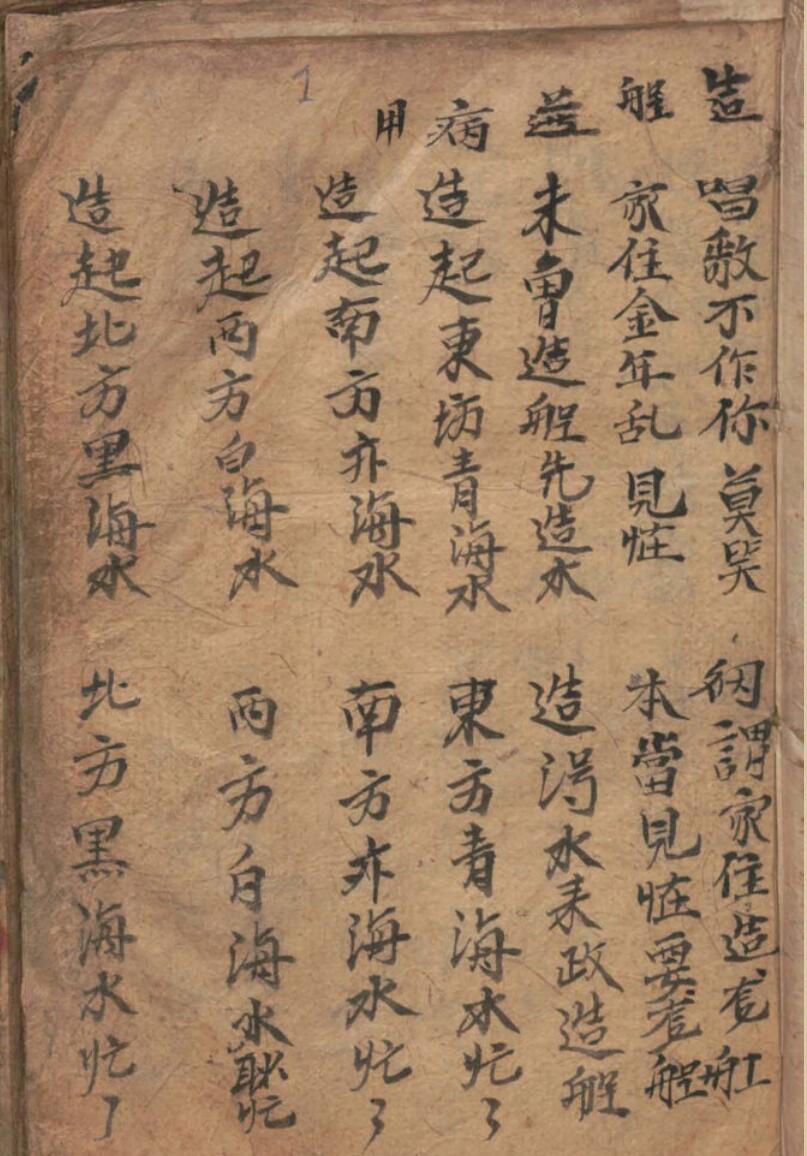 造船病用
唱不作你莫哭 謂家住造舡
家住金年乱見怪 本當見怪要船
未曾造船先造水 造淂水来政造船
造起東坊青海水 東方青海水忙了
造起南方亦海水 南方亦海水忙了
造起西方白海水 西方白海水忙
造起北方黑海水 北方黑海水忙了
1